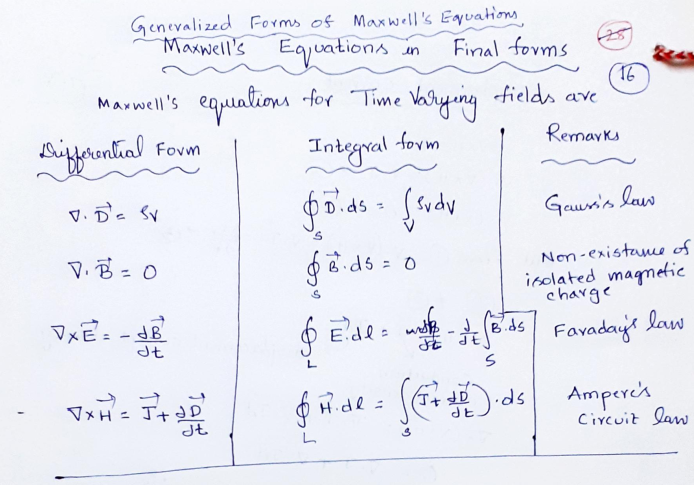 Generalized Forms of Maxwell's Equations
Maxwell's Equations in Final forms
28
16
Maxwell's equations for Time Varying fields are
Differential Form | Integral form | Remarks
∇·D⃗ = ρv | ∮_S D⃗·ds = ∫_V ρv dv | Gauss's law
∇·B⃗ = 0 | ∮_S B⃗·ds = 0 | Non-existance of
isolated magnetic
charge
∇×E⃗ = -∂B⃗/∂t | ∮_L E⃗·dl = -∂/∂t ∫_S B⃗·ds | Faraday's law
∇×H⃗ = J⃗ + ∂D⃗/∂t | ∮_L H⃗·dl = ∫_S (J⃗ + ∂D⃗/∂t)·ds | Ampere's
Circuit law